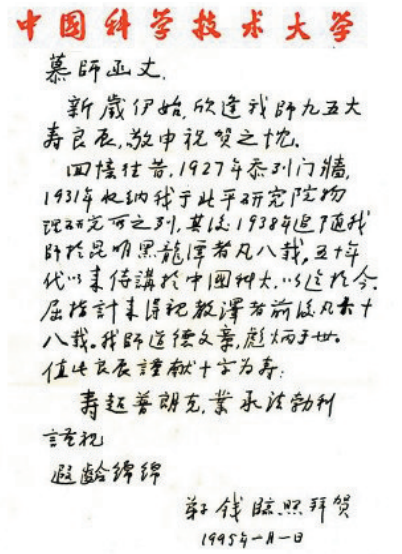 中国科学技术大学
慕師函丈.
新歲伊始,欣逢我師九五大
寿良辰,敬申祝贺之忱。
回憶往昔,1927年忝列门牆,
1931年收纳我于北平研究院物
理研究所之列,其後1938年追随我
師於昆明黑龍潭者凡八載,五十年
代以来侍講於中國科大,以迄於今.
屈指計来得親教澤者前後凡六十
八载。我師道德文章,彪炳于世。
值此良辰謹献十字为寿:
寿超普朗克,業承法勃利
謹祝
遐齡绵绵
钱臨照拜贺
1995年一月一日